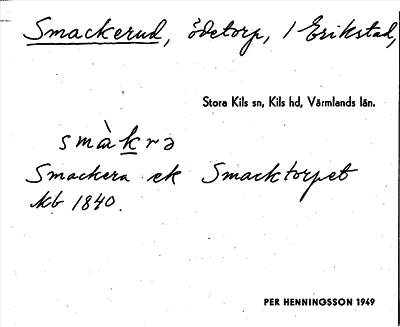 Smackerud, ödetorp, / Erikstad,
Stora Kils sn, Kils hd, Värmlands län.
smàkrə
Smackera ek Smacktorpet
kb 1840.
PER HENNINGSSON 1949